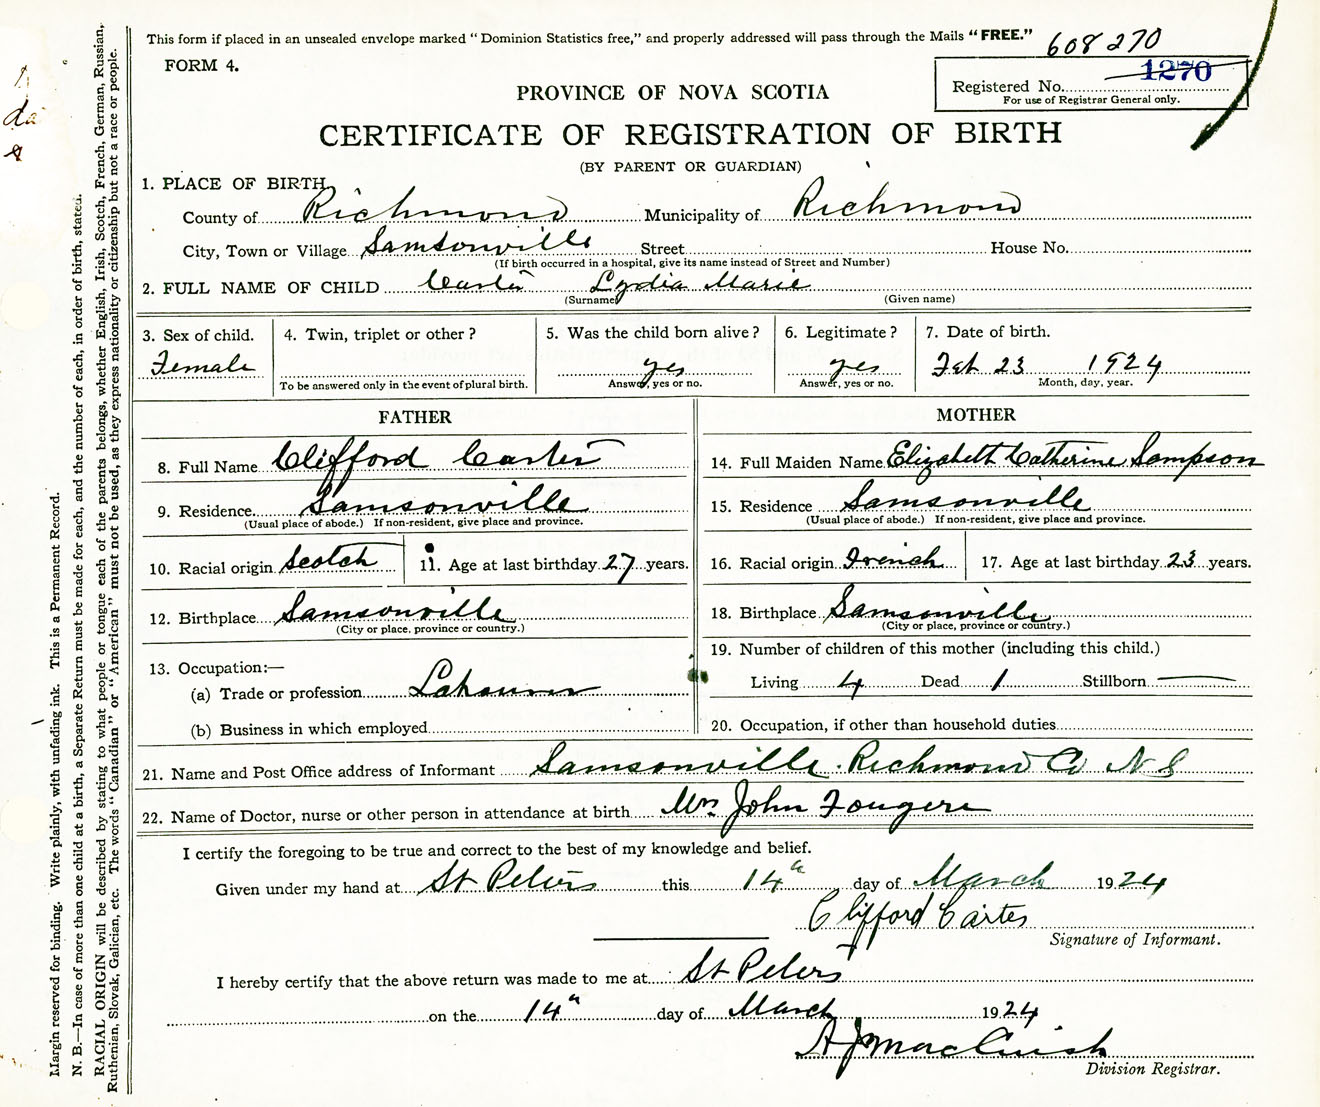 This form if placed in an unsealed envelope marked "Dominion Statistics free," and properly addressed will pass through the Mails "FREE."
608270
FORM 4.
1270
Registered No.
For use of Registrar General only.
PROVINCE OF NOVA SCOTIA
CERTIFICATE OF REGISTRATION OF BIRTH
(BY PARENT OR GUARDIAN)
1. PLACE OF BIRTH
County of Richmond Municipality of Richmond
City, Town or Village Samsonville Street House No.
(If birth occurred in a hospital, give its name instead of Street and Number)
2. FULL NAME OF CHILD Carter Lydia Marie
(Surname) (Given name)
3. Sex of child. 4. Twin, triplet or other? 5. Was the child born alive? 6. Legitimate? 7. Date of birth.
Female yes yes Feb 23 1924
To be answered only in the event of plural birth. Answer, yes or no. Answer, yes or no. Month, day, year.
FATHER MOTHER
8. Full Name Clifford Carter 14. Full Maiden Name Elizabeth Catherine Sampson
9. Residence Samsonville 15. Residence Samsonville
(Usual place of abode.) If non-resident, give place and province. (Usual place of abode.) If non-resident, give place and province.
10. Racial origin Scotch 11. Age at last birthday 27 years. 16. Racial origin French 17. Age at last birthday 23 years.
12. Birthplace Samsonville 18. Birthplace Samsonville
(City or place, province or country.) (City or place, province or country.)
13. Occupation:— 19. Number of children of this mother (including this child.)
(a) Trade or profession Labourer Living 4 Dead 1 Stillborn —
(b) Business in which employed 20. Occupation, if other than household duties
21. Name and Post Office address of Informant Samsonville Richmond Co N S
22. Name of Doctor, nurse or other person in attendance at birth Mrs John Fougere
I certify the foregoing to be true and correct to the best of my knowledge and belief.
Given under my hand at St Peters this 14th day of March 1924
Clifford Carter
Signature of Informant.
I hereby certify that the above return was made to me at St Peters
on the 14th day of March 1924
A J MacCuish
Division Registrar.
Margin reserved for binding. Write plainly, with unfading ink. This is a Permanent Record.
N. B.—In case of more than one child at a birth, a Separate Return must be made for each, and the number of each, in order of birth, stated.
RACIAL ORIGIN will be described by stating to what people or tongue each of the parents belongs, whether English, Irish, Scotch, French, German, Russian,
Ruthenian, Slovak, Galician, etc. The words "Canadian" or "American" must not be used, as they express nationality or citizenship but not a race or people.